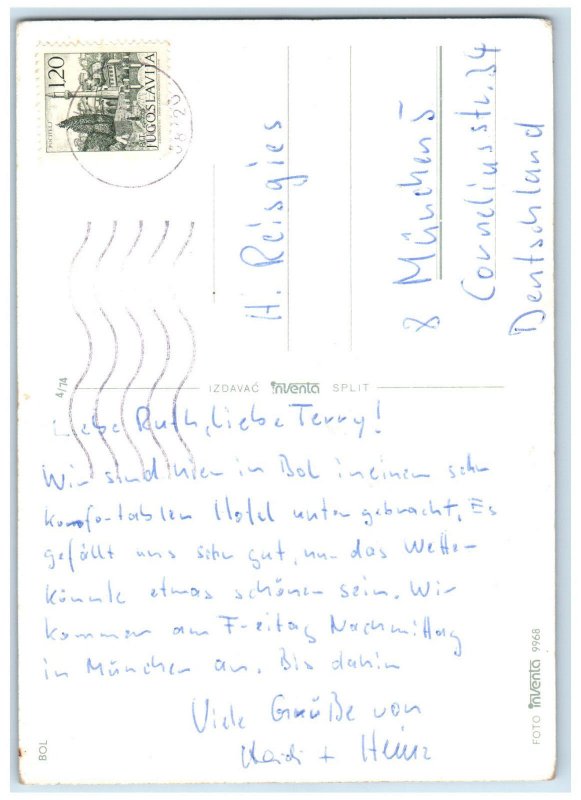 1.20
JUGOSLAVIJA
POČITELJ
H. Reisgies
8 München 5
Corneliusstr. 34
Deutschland
4/74
IZDAVAČ inventa SPLIT
Liebe Ruth, liebe Terry!
Wir sind hier in Bol in einem sehr
komfortablen Hotel untergebracht. Es
gefällt uns sehr gut, nur das Wetter
könnte etwas schöner sein. Wir
kommen am Freitag Nachmittag
in München an. Bis dahin
Viele Grüße von
Heidi + Heinz
BOL
FOTO inventa 9968